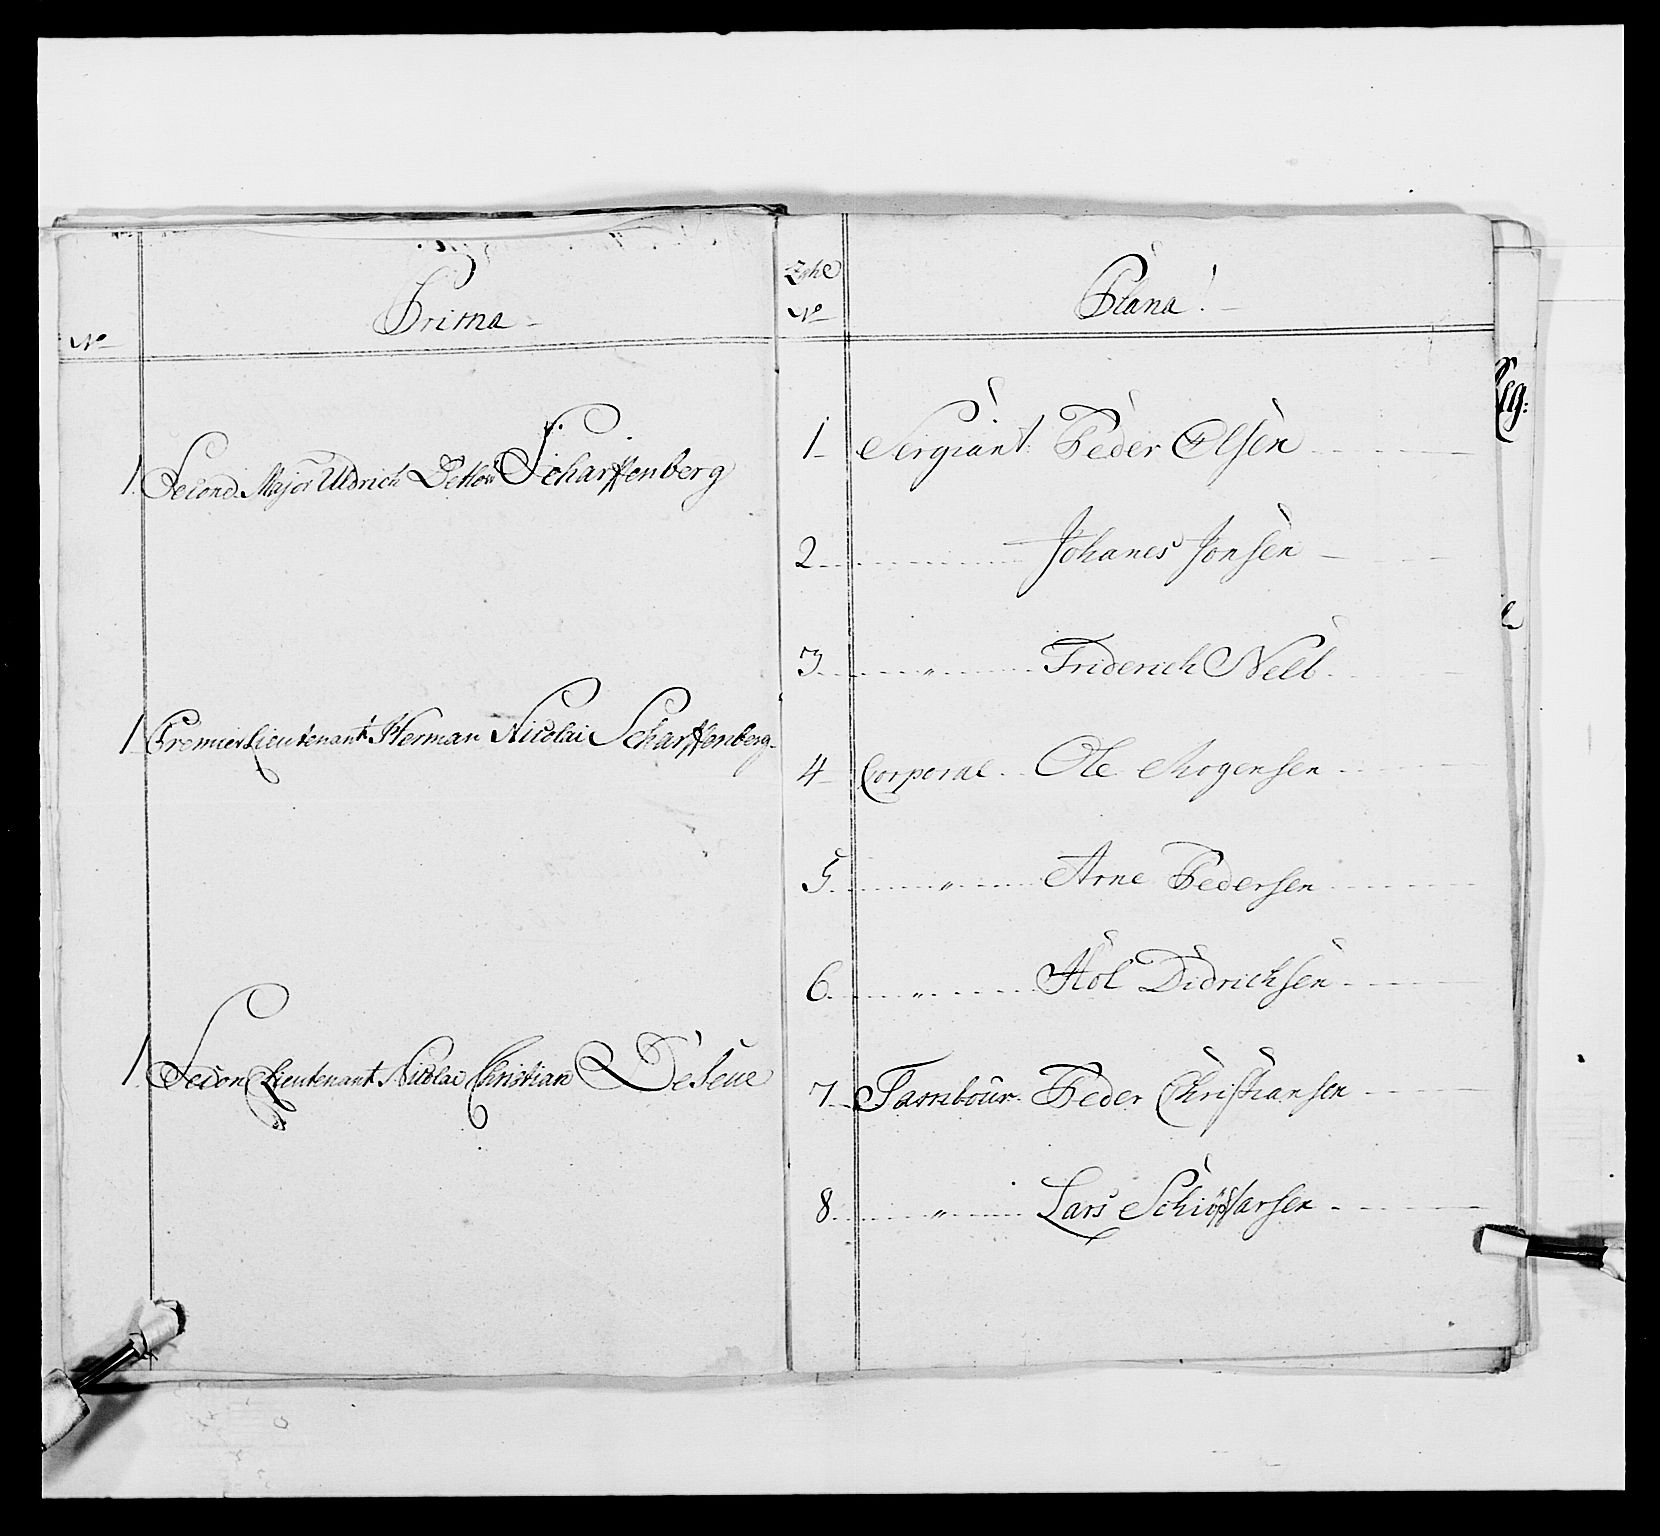 No
Prima
1 Second Major Uldrich Detlow Scharffenberg
1 Premier Lieutenant Herman Nicolai Scharffenberg
1 Secon Lieutenant Nicolai Christian DeSeue
No
Plana!
1 Sergiant Peder Olsen
2 Johanes Jonsen
3 " Friderich Neeb
4 Corporal Ole Mogensen
5 " Arne Pedersen
6 " Hol Didrichsen
7 Tambour Peder Christiansen
8 " Lars